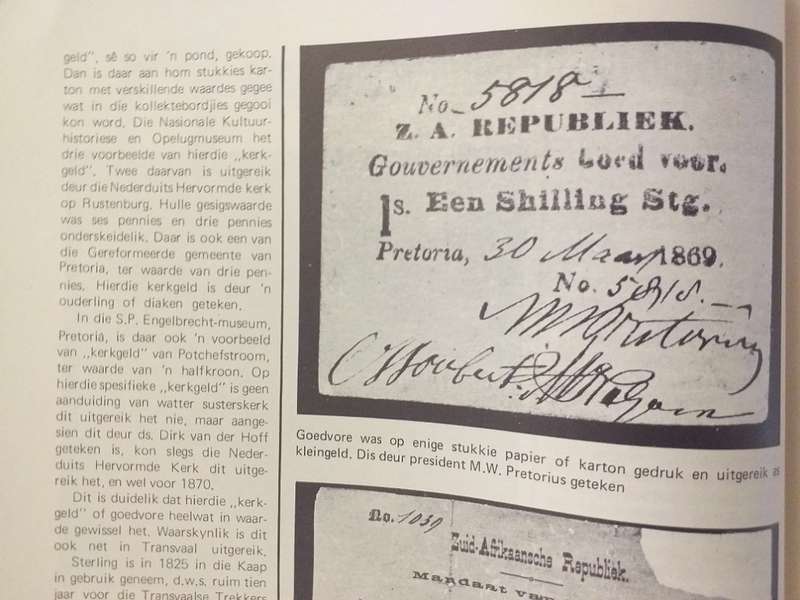 geld", sê so vir 'n pond, gekoop.
Dan is daar aan hom stukkies kar-
ton met verskillende waardes gegee
wat in die kollektebordjies gegooi
kon word. Die Nasionale Kultuur-
historiese en Opelugmuseum het
drie voorbeelde van hierdie ,,kerk-
geld". Twee daarvan is uitgereik
deur die Nederduits Hervormde kerk
op Rustenburg. Hulle gesigswaarde
was ses pennies en drie pennies
onderskeidelik. Daar is ook een van
die Gereformeerde gemeente van
Pretoria, ter waarde van drie pen-
nies. Hierdie kerkgeld is deur 'n
ouderling of diaken geteken.
In die S.P. Engelbrecht-museum,
Pretoria, is daar ook 'n voorbeeld
van ,,kerkgeld" van Potchefstroom,
ter waarde van 'n halfkroon. Op
hierdie spesifieke ,,kerkgeld" is geen
aanduiding van watter susterskerk
dit uitgereik het nie, maar aange-
sien dit deur ds. Dirk van der Hoff
geteken is, kon slegs die Neder-
duits Hervormde Kerk dit uitge-
reik het, en wel voor 1870.
Dit is duidelik dat hierdie ,,kerk-
geld" of goedvore heelwat in waar-
de gewissel het. Waarskynlik is dit
ook net in Transvaal uitgereik.
Sterling is in 1825 in die Kaap
in gebruik geneem, d.w.s. ruim tien
jaar voor die Transvaalse Trekkers
No. 5818
Z. A. REPUBLIEK.
Gouvernements Goed voor.
1s. Een Shilling Stg.
Pretoria, 30 Maart 1869.
No. 5818.
MWPretorius
Goedvore was op enige stukkie papier of karton gedruk en uitgereik as
kleingeld. Dis deur president M.W. Pretorius geteken
No. 1039
Zuid-Afrikaansche Republiek.
Mandaat van